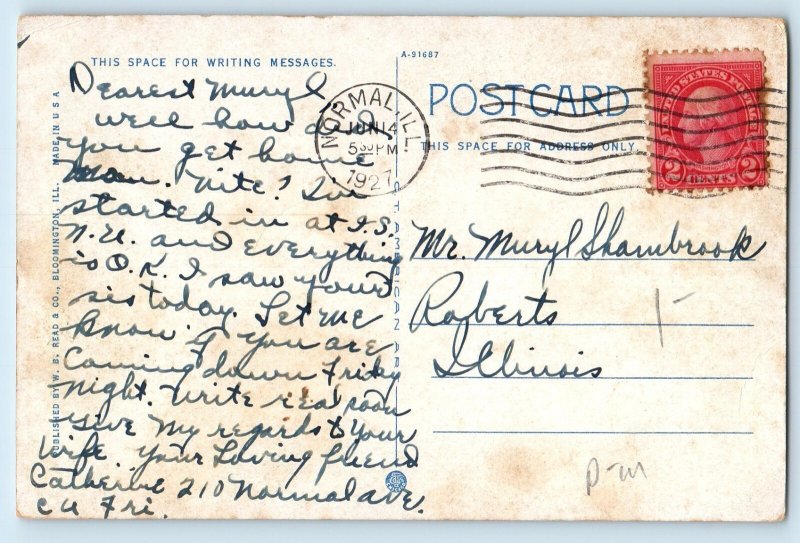 THIS SPACE FOR WRITING MESSAGES.
Dearest Muryl
Well how did
you get home
Mon. Nite? I'm
started in at I.S.
N.U. and everything
is O.K. I saw your
sis today. Let me
know if you are
coming down Friday
night. Write real soon
Give my regards to your
wife. Your Loving friend
Catherine 210 Normal ave.
CU Fri.
PUBLISHED BY W. B. READ & CO., BLOOMINGTON, ILL. MADE IN U S A
A-91687
POSTCARD
THIS SPACE FOR ADDRESS ONLY.
NORMAL, ILL.
JUN 14
5 30 PM
1927
UNITED STATES POSTAGE
2 CENTS 2
Mr. Muryl Shambrook
Roberts
Illinois
P-m